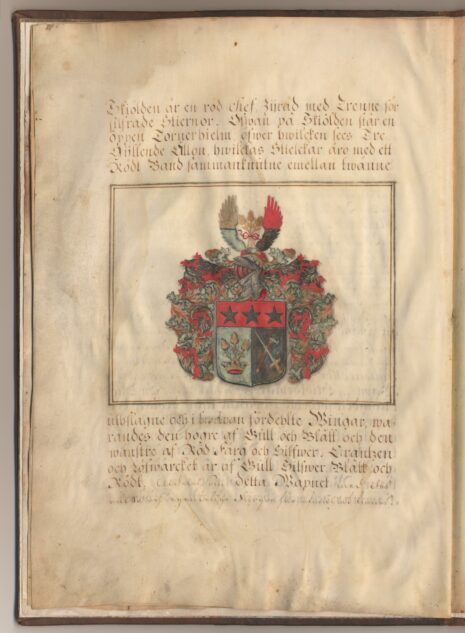 Skiölden är en röd chef Zijrad med Trenne för
silfrade Stiernor. Ofwan på Skiölden står en
öppen Tornerhielm ofwer hwilcken sees Tre
Gyllende Ållon, hwilckas Stielckar äro med ett
Rödt Band sammanknutne emellan twänne
utwslagne och i twädran fördehlte Wingar, wa-
randes den högre af Gull och Blått och den
wänstre af Röd Färg och Silfwer. Crantzen
och Löfwärcket är af Gull Silfwer Blått och
Rödt, detta Wapnet